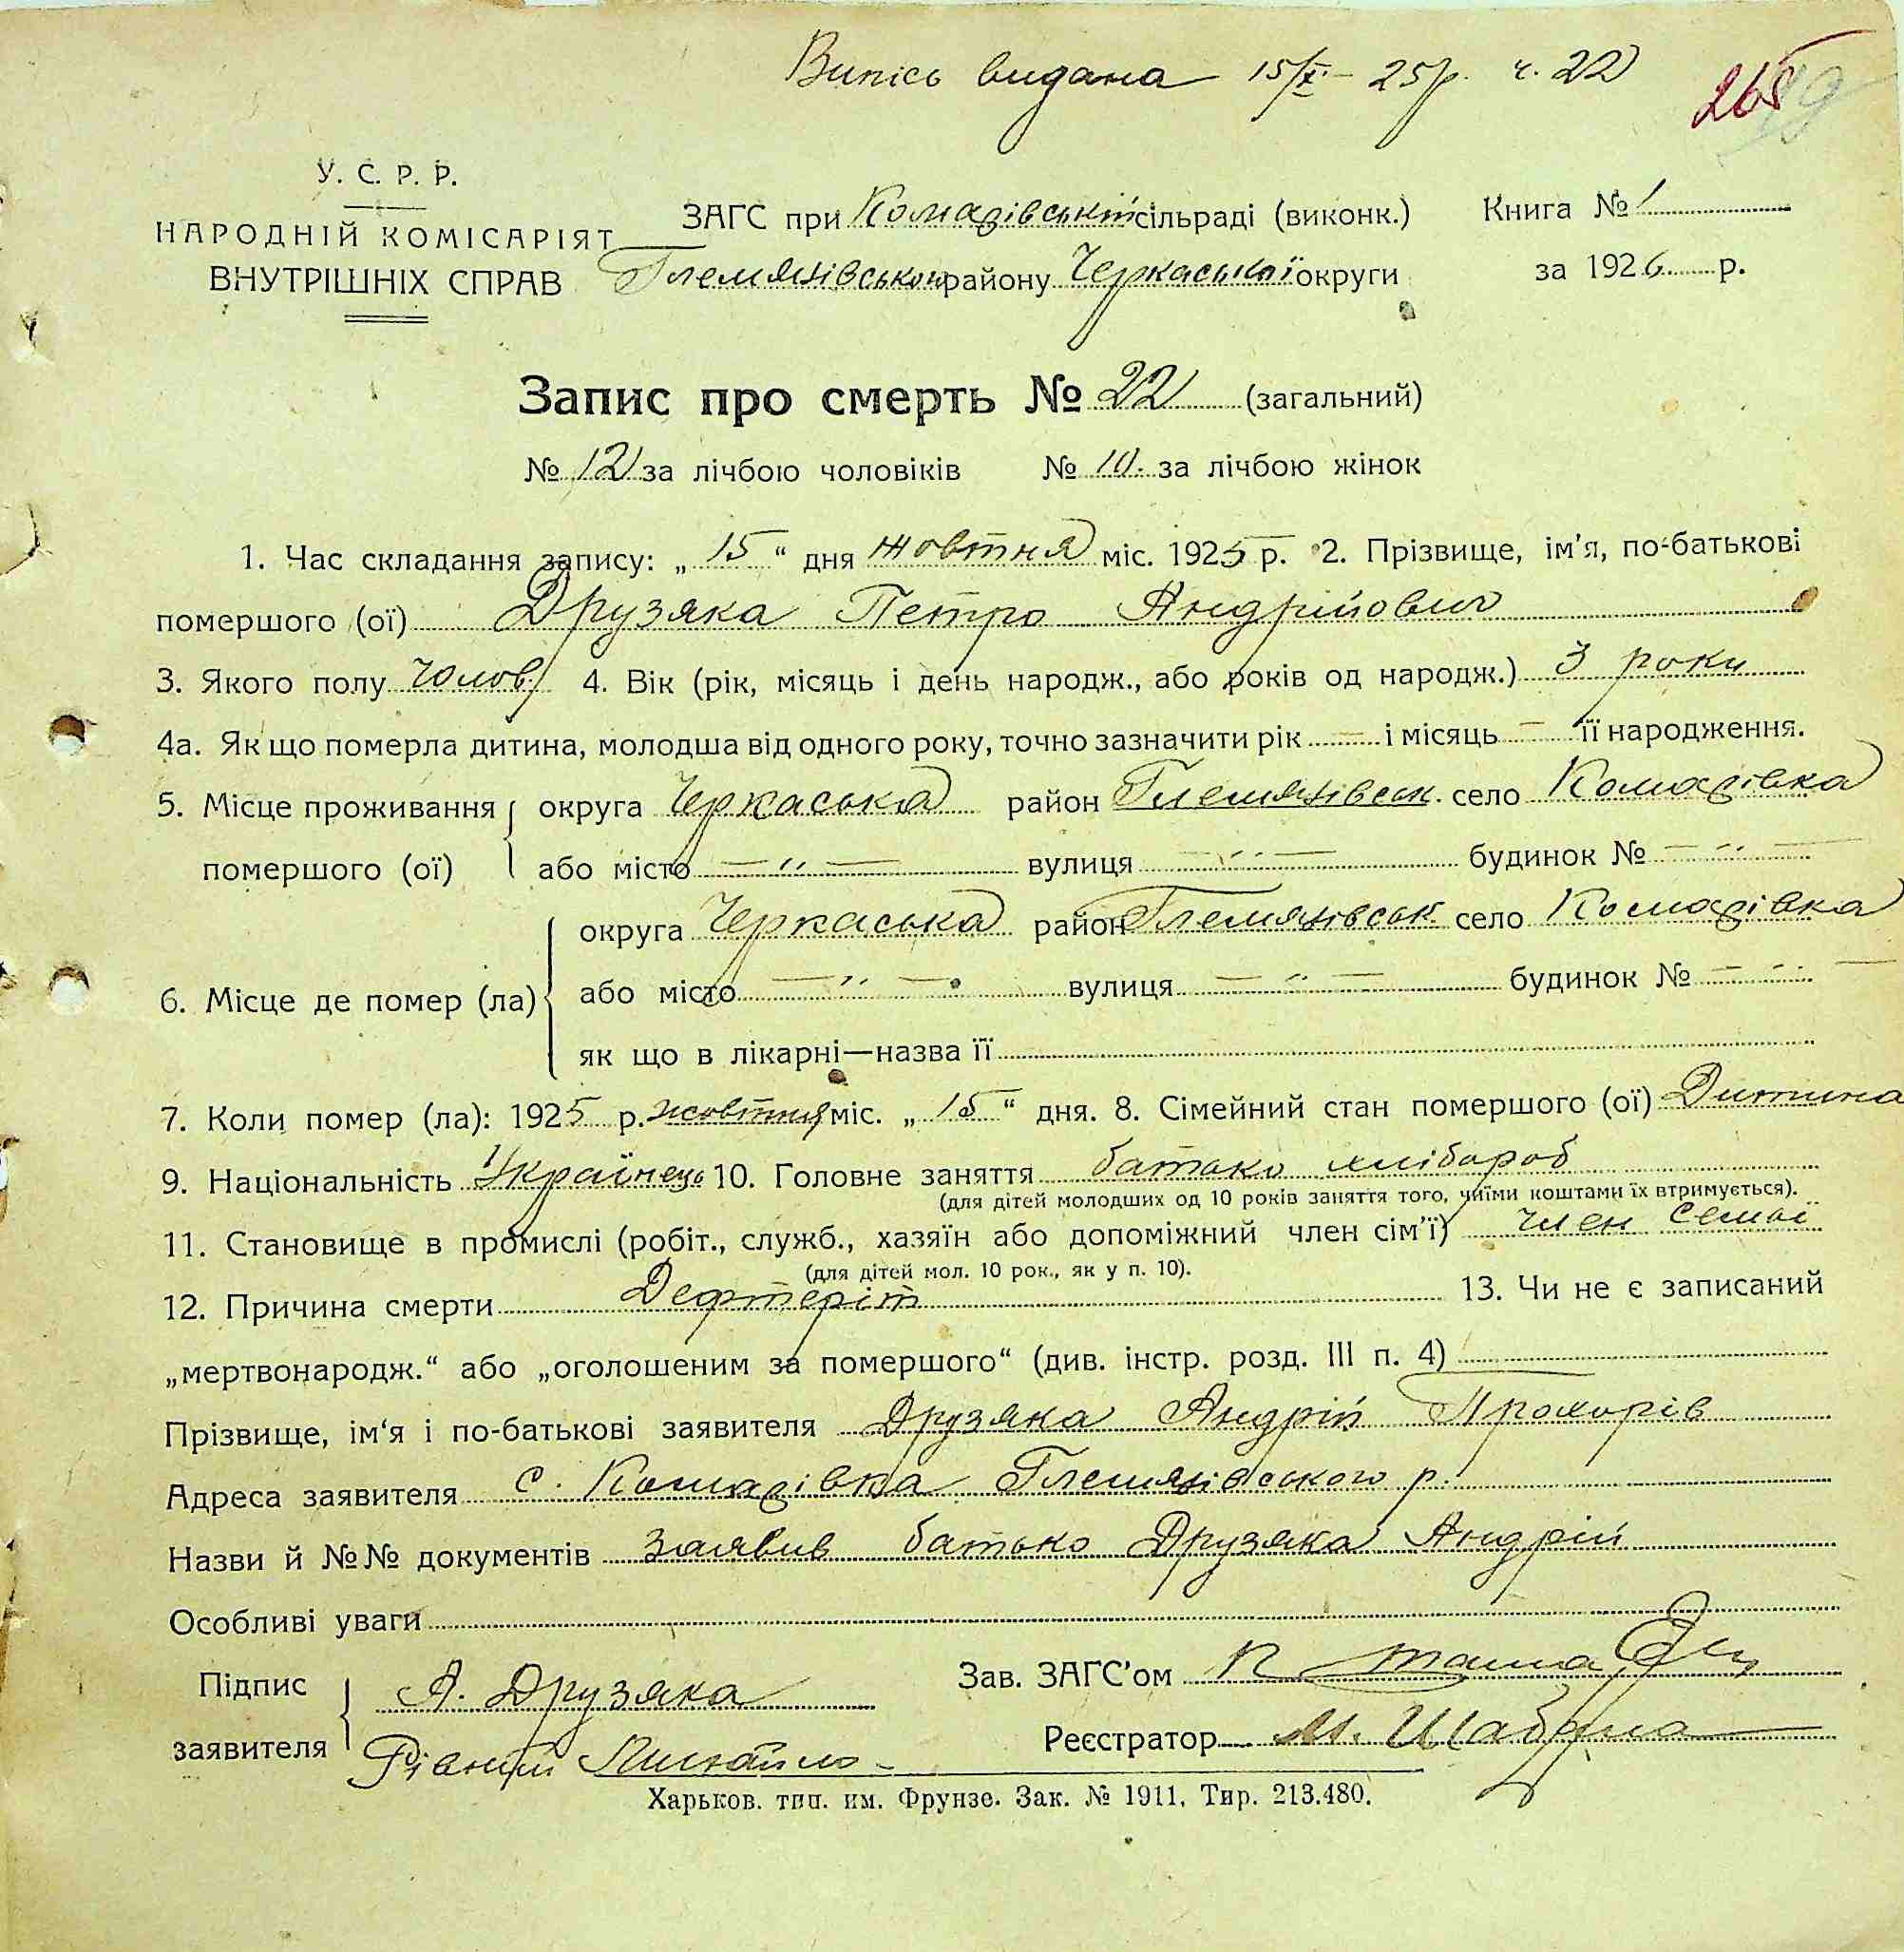 Випісь видана 15/X - 25 р. ч. 22
265
У. С. Р. Р.
НАРОДНІЙ КОМІСАРІЯТ
ВНУТРІШНІХ СПРАВ
ЗАГС при Комарівській сільраді (виконк.) Книга № 1
Гельмязівського району Черкаської округи за 1926 р.
Запис про смерть № 22 (загальний)
№ 12 за лічбою чоловіків № 10. за лічбою жінок
1. Час складання запису: „15“ дня жовтня міс. 1925 р. 2. Прізвище, ім'я, по-батькові
помершого (ої) Друзяка Петро Андрійович
3. Якого полу Чолов 4. Вік (рік, місяць і день народж., або років од народж.) 3 роки
4а. Як що померла дитина, молодша від одного року, точно зазначити рік — і місяць — її народження.
5. Місце проживання округа Черкаська район село
помершого (ої) або місто — „ — вулиця — „ — будинок № — „ —
округа Черкаська район село
6. Місце де помер (ла) або місто — „ — вулиця — „ — будинок № — „ —
як що в лікарні—назва її
7. Коли помер (ла): 1925 р. жовтня міс. „15“ дня. 8. Сімейний стан помершого (ої) Дитина
9. Національність Українець 10. Головне заняття батько хлібороб
(для дітей молодших од 10 років заняття того, чиїми коштами їх втримується).
11. Становище в промислі (робіт., служб., хазяїн або допоміжний член сім'ї) член семьї
(для дітей мол. 10 рок., як у п. 10).
12. Причина смерти Дефтеріт 13. Чи не є записаний
„мертвонародж.“ або „оголошеним за помершого“ (див. інстр. розд. III п. 4)
Прізвище, ім'я і по-батькові заявителя Друзяка Андрій Прохорів
Адреса заявителя с. р.
Назви й №№ документів заявив батько Друзяка Андрій
Особливі уваги
Підпис А. Друзяка Зав. ЗАГС'ом
заявителя Рівний Михайло Реєстратор М.
Харьков. тип. им. Фрунзе. Зак. № 1911. Тир. 213.480.